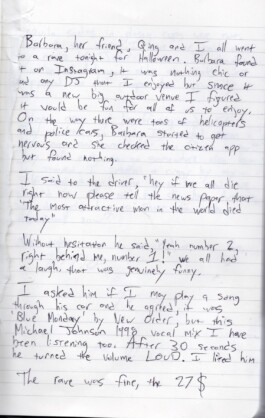 Barbara, her friend, Qing and I all went
to a rave tonight for Halloween. Barbara found
it on Instagram, it was nothing chic or
a DJ that I enjoyed but since it
was a new big outdoor venue I figured
it would be fun for all of us to enjoy.
On the way there were tons of helicopters
and police cars, Barbara started to get
nervous and she checked the citizen app
but found nothing.
I said to the driver, "hey if we all die
right now please tell the news paper that
"The most attractive man in the world died
today"
Without hesitation he said, "Yeah number 2,
right behind me, number 1!" we all had
a laugh, that was genuinely funny.
I asked him if I may play a song
through his car and he agreed, it was
'Blue Monday' by New Order, but this
Michael Johnson 1998 vocal mix I have
been listening too. After 30 seconds
he turned the volume LOUD. I liked him.
The rave was fine, the 27$